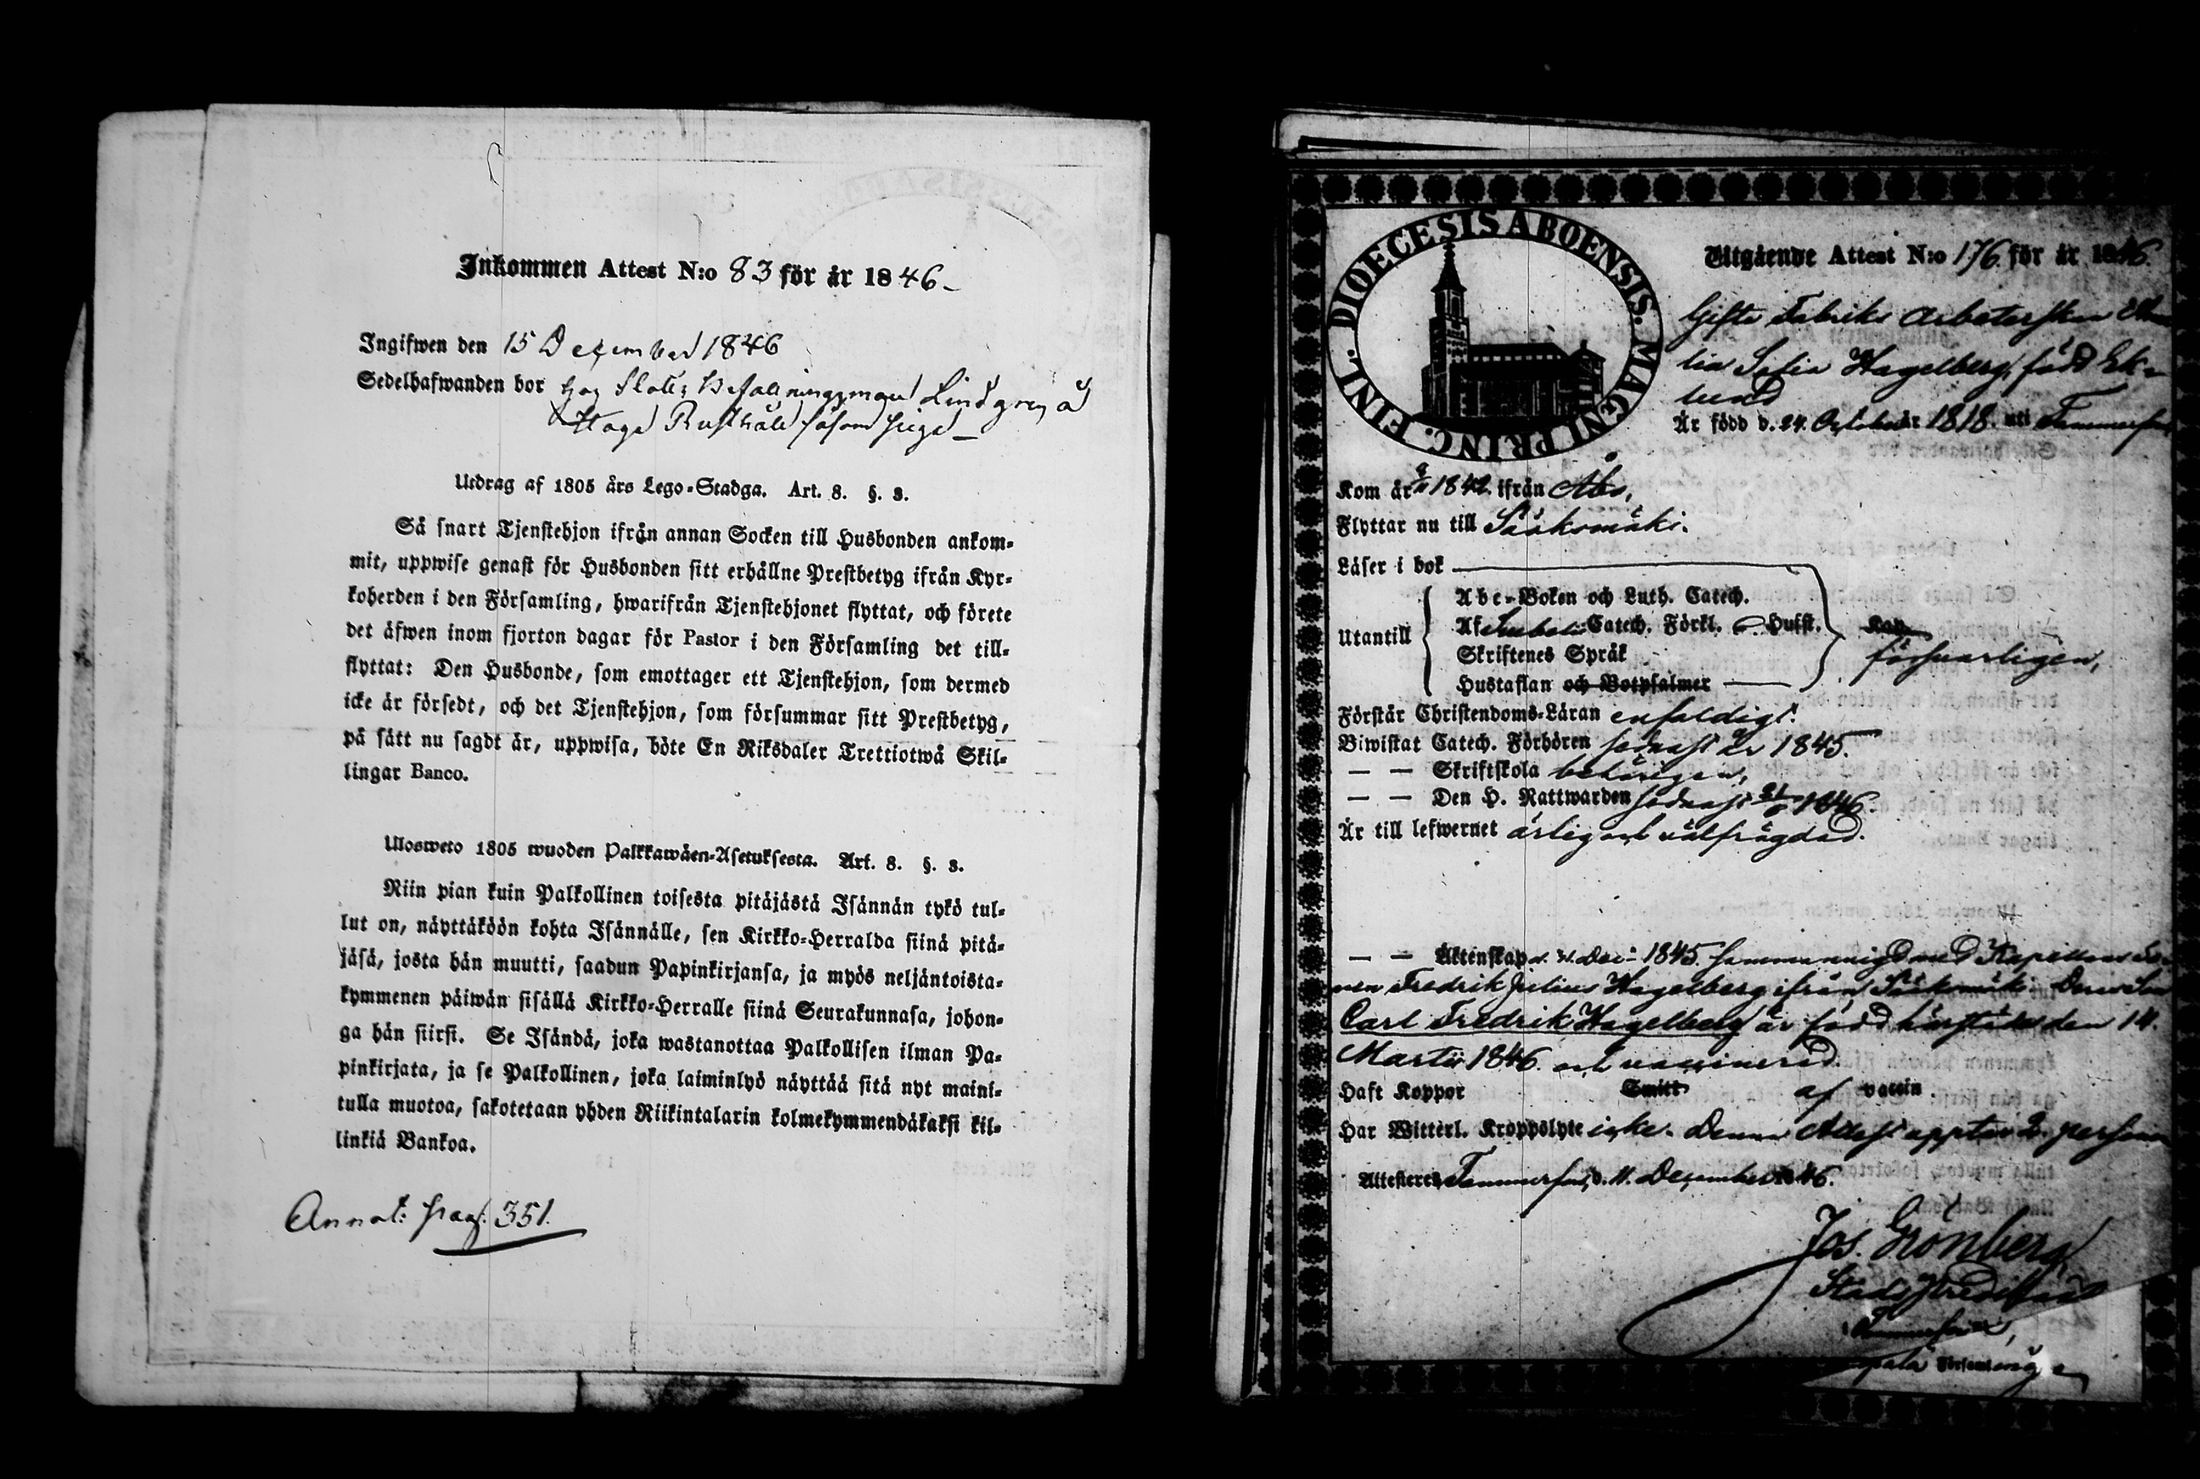 Inkommen Attest N:o 83 för år 1846
Ingifwen den 15 December 1846
Sedelhafwanden bor hos Slotts Befallningsman Lindgren å
Haga Rusthåll såsom Piga
Utdrag af 1805 års Lego-Stadga. Art. 8. §. 3.
Så snart Tjenstehjon ifrån annan Socken till Husbonden ankom-
mit, uppwise genast för Husbonden sitt erhållne Prestbetyg ifrån Kyr-
koherden i den Församling, hwarifrån Tjenstehjonet flyttat, och förete
det äfwen inom fjorton dagar för Pastor i den Församling det till-
flyttat: Den Husbonde, som emottager ett Tjenstehjon, som dermed
icke är försedt, och det Tjenstehjon, som försummar sitt Prestbetyg,
på sätt nu sagdt är, uppwisa, böte En Riksdaler Trettiotwå Skil-
lingar Banco.
Ulosweto 1805 wuoden Palkkawäen-Asetuksesta. Art. 8. §. 3.
Niin pian kuin Palkollinen toisesta pitäjästä Isännän tykö tul-
lut on, näyttäköön kohta Isännälle, sen Kirkko-Herralda siinä pitä-
jäsä, josta hän muutti, saadun Papinkirjansa, ja myös neljäntoista-
kymmenen päiwän sisällä Kirkko-Herralle siinä Seurakunnasa, johon-
ga hän siirsi. Se Isändä, joka wastanottaa Palkollisen ilman Pa-
pinkirjata, ja se Palkollinen, joka laiminlyö näyttää sitä nyt maini-
tulla muotoa, sakotetaan yhden Riikintalarin kolmekymmendäkaksi kil-
linkiä Bankoa.
Annot: pag. 351.
DIOECESIS ABOENSIS. MAGNI PRINC. FINL.
Utgående Attest N:o 176 för år 1846.
Gifta Fabriks Arbeterskan
lia Sofia Hagelberg, född Ek-
lund
Är född d. 24. October 1818. uti Tammerfors
Kom år 1842. ifrån Åbo,
Flyttar nu till Sääksmäki.
Läser i bok
Utantill
Abc-Boken och Luth. Catech.
Af Catech. Förkl. Husst.
Skriftenes Språk
Hustaflan och Botpsalmer
försvarligen,
Förstår Christendoms-Läran enfaldigt.
Biwistat Catech. Förhören sednast år 1845.
— — Skriftskola behörigen,
— — Den H. Nattwarden sednast 1846.
Är till lefwernet ärlig och välfrägdad.
— — Äktenskap d. Dec: 1845 sammanvigd med
Fredrik Julius Hagelberg ifrån Sääksmäki. Deras Son
Carl Fredrik Hagelberg är född härstädes den 14.
Martii 1846 och vaccinerad.
Haft Koppor Smitt af vaccin
Har Witterl. Kroppslyte icke. Denna Attest upptar 2. personer
Attesterer, Tammerfors, d. 11. December 1846.
Jos. Grönberg
Stads Predikant
Tammerfors,
Församlingen